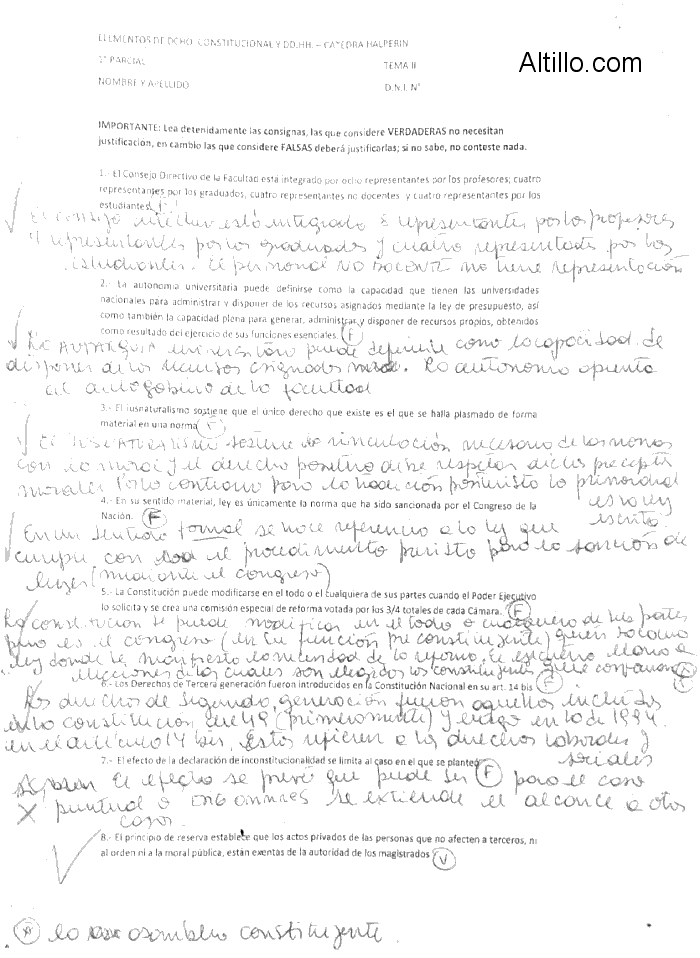 ELEMENTOS DE DCHO. CONSTITUCIONAL Y DD.HH. – CATEDRA HALPERIN
Altillo.com
1° PARCIAL
TEMA II
NOMBRE Y APELLIDO
D.N.I. N°
IMPORTANTE: Lea detenidamente las consignas, las que considere VERDADERAS no necesitan
justificación, en cambio las que considere FALSAS deberá justificarlas; si no sabe, no conteste nada.
1.- El Consejo Directivo de la Facultad está integrado por ocho representantes por los profesores; cuatro
representantes por los graduados, cuatro representantes no docentes y cuatro representantes por los
estudiantes. F
El consejo directivo está integrado 8 representantes por los profesores
4 representantes por los graduados y cuatro representantes por los
estudiantes. El personal NO DOCENTE no tiene representación
2.- La autonomía universitaria puede definirse como la capacidad que tienen las universidades
nacionales para administrar y disponer de los recursos asignados mediante la ley de presupuesto, así
como también la capacidad plena para generar, administrar y disponer de recursos propios, obtenidos
como resultado del ejercicio de sus funciones esenciales. F
La AUTARQUIA universitaria puede definirse como la capacidad de
disponer de los recursos asignados La autonomía apunta
al autogobierno de la facultad
3.- El iusnaturalismo sostiene que el único derecho que existe es el que se halla plasmado de forma
material en una norma F
El IUSNATURALISMO sostiene la vinculación necesaria de las normas
con la moral y el derecho positivo debe respetar dichos preceptos
morales. Por lo contrario para la tradición positivista lo primordial
es la ley
4.- En su sentido material, ley es únicamente la norma que ha sido sancionada por el Congreso de la
Nación. F
escrita
En un sentido formal se hace referencia a la ley que
cumple con el procedimiento previsto para la sanción de
leyes (mediante el congreso)
5.- La Constitución puede modificarse en el todo o el cualquiera de sus partes cuando el Poder Ejecutivo
lo solicita y se crea una comisión especial de reforma votada por los 3/4 totales de cada Cámara. F
La constitución se puede modificar en el todo o cualquiera de sus partes
pero es el congreso (en su función pre constituyente) quien
ley donde se manifiesta la necesidad de la reforma, llama a
elecciones de los cuales son elegidos los constituyentes que
6.- Los Derechos de Tercera generación fueron introducidos en la Constitución Nacional en su art. 14 bis F
Los derechos de segunda generación fueron aquellos incluidos
en la constitución del 49 (primeramente) y luego en la de 1994
en el artículo 14 bis, estos refieren a los derechos laborales y
sociales
7.- El efecto de la declaración de inconstitucionalidad se limita al caso en el que se planteó F
El efecto se prevé que puede ser para el caso
puntual o se extiende el alcance a otros
casos.
8.- El principio de reserva establece que los actos privados de las personas que no afecten a terceros, ni
al orden ni a la moral pública, están exentas de la autoridad de los magistrados V
la asamblea constituyente.